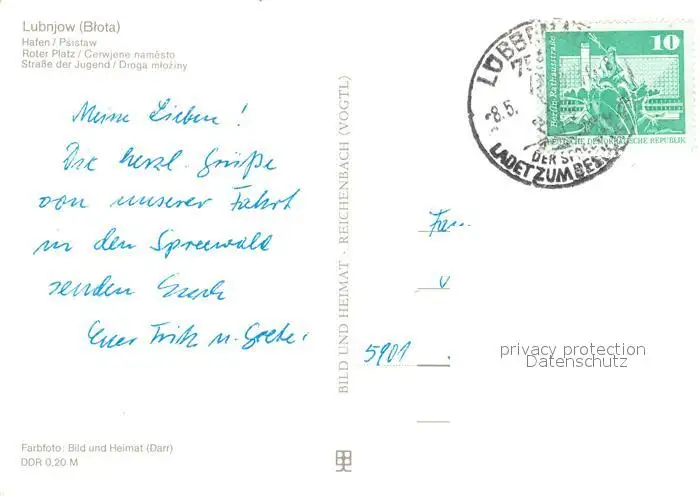 Lubnjow (Błota)
Hafen / Pśistaw
Roter Platz / Cerwjene naměsto
Straße der Jugend / Droga młoźiny
Meine Lieben!
Die herzl. Grüße
von unserer Fahrt
in den Spreewald
senden Euch
Euer Fritz u. Grete.
BILD UND HEIMAT · REICHENBACH (VOGTL)
LÜBBENAU
8.5.
DER SPREE
LADET ZUM BES
10
Berlin, Rathausstraße
DEUTSCHE DEMOKRATISCHE REPUBLIK
Fam.
5901
privacy protection
Datenschutz
Farbfoto: Bild und Heimat (Darr)
DDR 0,20 M